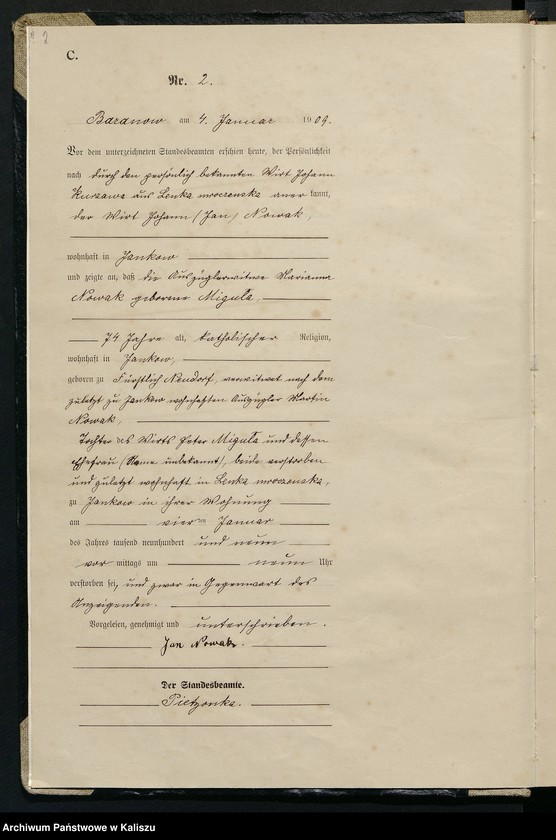 2
C.
Nr. 2.
Baranow am 4. Januar 1909.
Vor dem unterzeichneten Standesbeamten erschien heute, der Persönlichkeit
nach durch den persönlich bekannten Wirt Johann
Kurzawa aus Lenka mroczenska aner kannt,
der Wirt Johann (Jan) Nowak,
wohnhaft in Jankow
und zeigte an, daß die Auszüglerwitwe Marianna
Nowak geborene Miguła,
74 Jahre alt, katholischer Religion,
wohnhaft in Jankow,
geboren zu Fürstlich Neudorf, verwitwet nach dem
zuletzt zu Jankow wohnhaften Auszügler Martin
Nowak,
Tochter des Wirts Peter Miguła und dessen
Ehefrau (Name unbekannt), beide verstorben
und zuletzt wohnhaft in Lenka mroczenska,
zu Jankow in ihrer Wohnung
am vierten Januar
des Jahres tausend neunhundert und neun
vor mittags um neun Uhr
verstorben sei, und zwar in Gegenwart des
Anzeigenden.
Vorgelesen, genehmigt und unterschrieben.
Jan Nowak.
Der Standesbeamte.
Pietzonka.
Archiwum Państwowe w Kaliszu